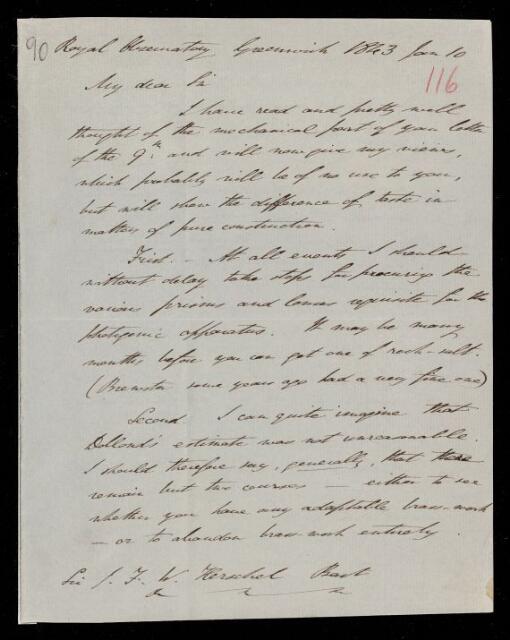 90
Royal Observatory Greenwich 1843 Jan 10
116
My dear Sir
I have read and pretty well
thought of the mechanical part of your letter
of the 9th. and will now give my views,
which probably will be of no use to you,
but will show the difference of taste in
matters of pure construction.
First. - At all events I should
without delay take steps for procuring the
various prisms and lenses requisite for the
photogenic apparatus. It may be many
months before you can get one of rock-salt.
(Brewster some years ago had a very fine one)
Second. I can quite imagine that
Dollond's estimate was not unreasonable.
I should therefore say, generally, that there
remain but two courses — either to see
whether you have any adaptable brass-work
— or to abandon brass-work entirely.
Sir J. F. W. Herschel Bart